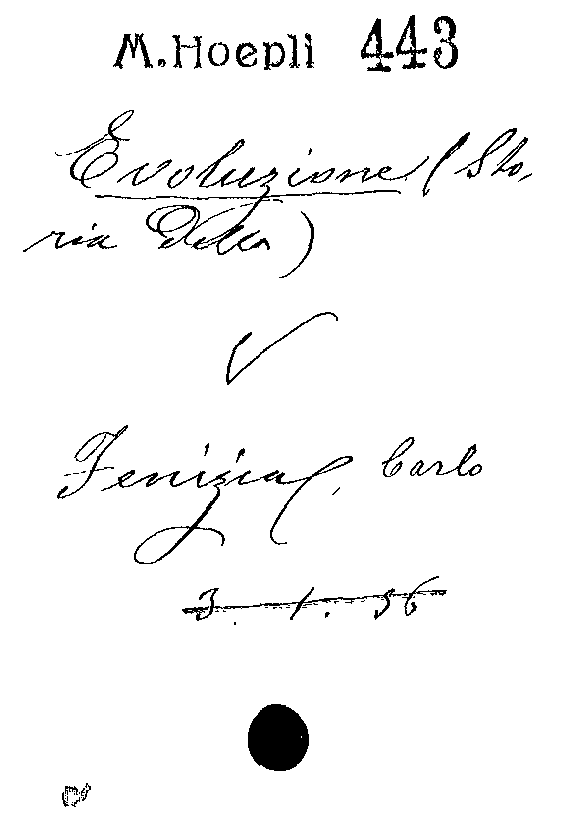 M. Hoepli 443
Evoluzione (Sto,
ria Della)
Fenizia, Carlo
3. 1. 36